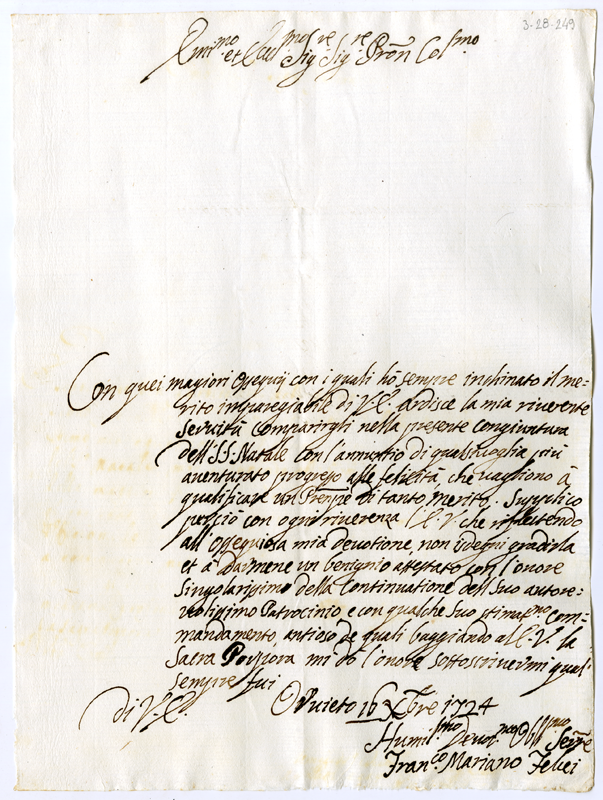 3-28-249
Emi.mo et Rev.mo Sig.re Sig.re Pron Col.mo
Con quei magiori Ossequij con i quali hò sempre inchinato il me=
rito impareggiabile di V.E. ardisce la mia riverente
servitù comparirgli nella presente Congiuntura
dell'SS. Natale con l'annuntio di qualsivoglia più
aventurato progresso alle felicità, che vagliono à
qualificare un Prenpe di tanto merito. Supplico
perciò con ogni riverenza l'E.V. che riflettendo
all'Ossequiosa mia devotione, non isdegni gradirla
et à darmene un benignio attestato con l'onore
singolarissimo della Continuatione dell'Suo autore=
volissimo Patrocinio e con qualche Suo stimat.mo Com=
mandamento antioso de quali baggiando all'E.V. la
Sacra Porpora mi do l'onore sottoscrivermi qual
sempre fui
Orvieto 16 Xbre 1724
di V.E.
Humil.mo Devot.mo Obb.mo Serre
Fran.co Mariano Felici